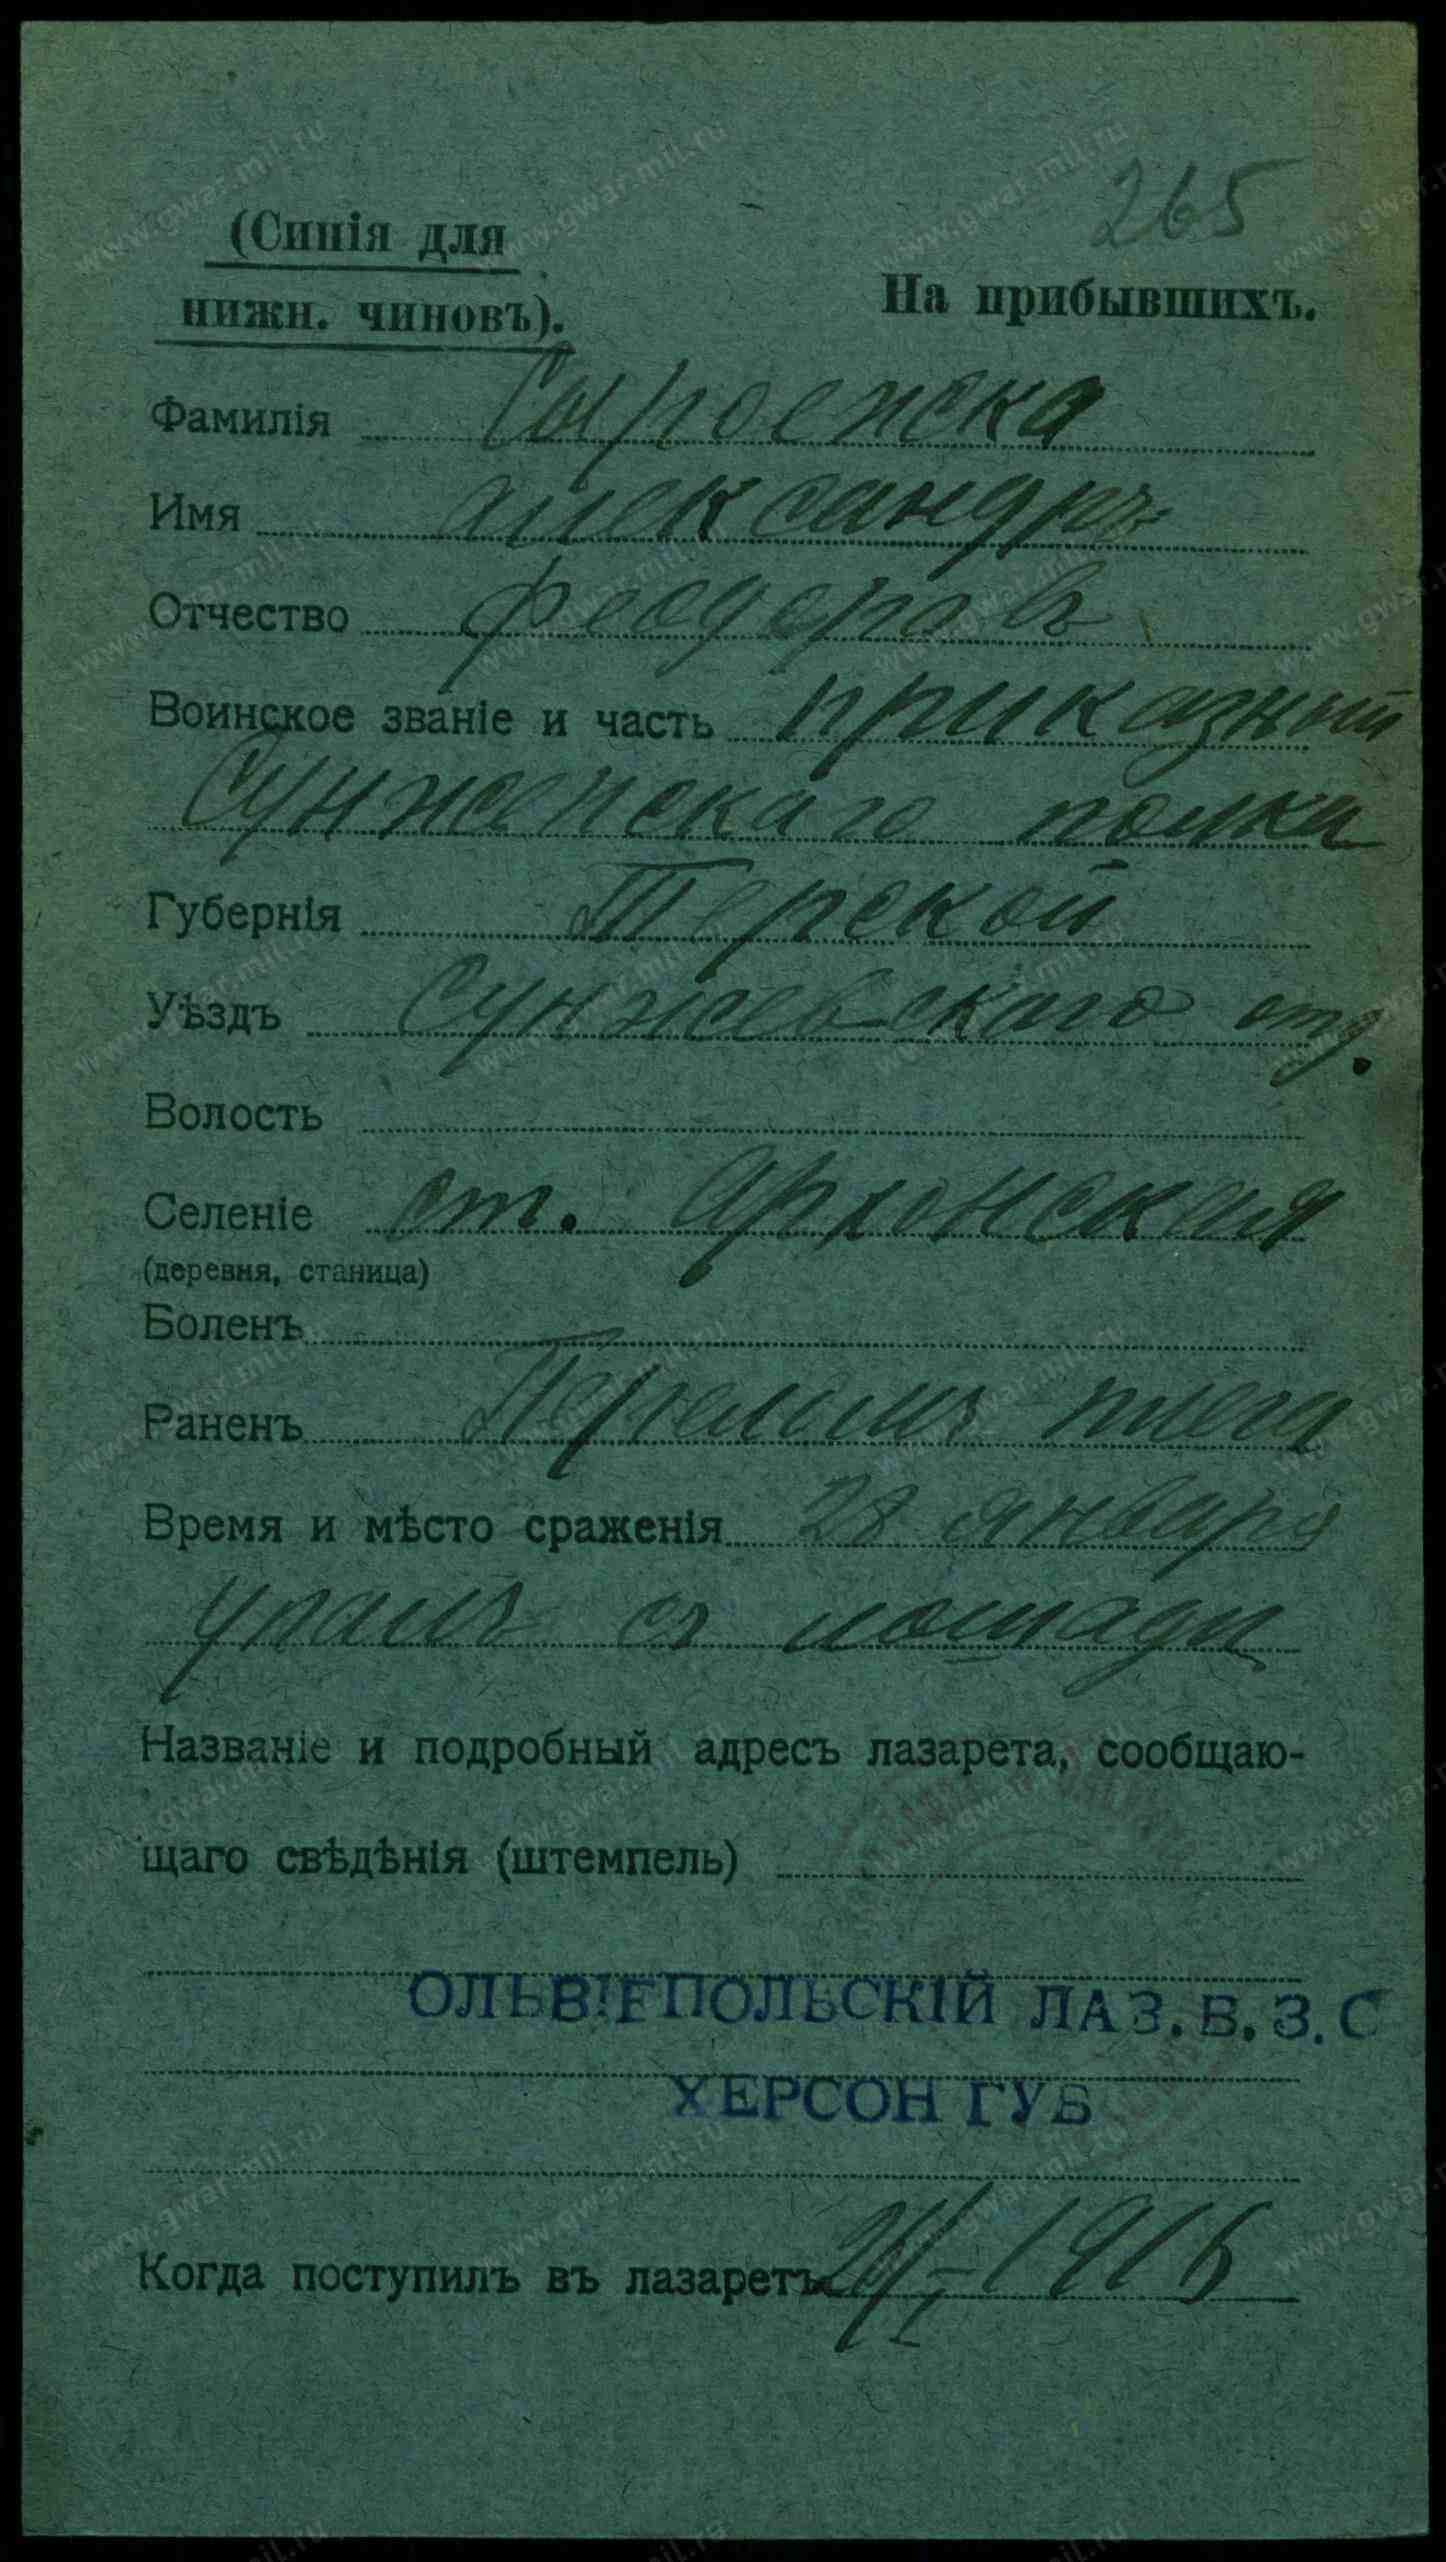 265
(Синія для
нижн. чиновъ).
На прибывшихъ.
Фамилія Сыроежка
Имя Александръ
Отчество Федоровъ
Воинское званіе и часть приказный
Сунженскаго полка
Губернія Терской
Уѣздъ Сунженскаго отд.
Волость
Селеніе ст. Архонская
(деревня, станица)
Боленъ
Раненъ Переломъ плеча
Время и мѣсто сраженія 28 января
упалъ съ лошади
Названіе и подробный адресъ лазарета, сообщаю-
щаго свѣдѣнія (штемпель)
ОЛЬВІЕПОЛЬСКІЙ ЛАЗ. В. З. С
ХЕРСОН ГУБ
Когда поступилъ въ лазаретъ 1916
www.gwar.mil.ru